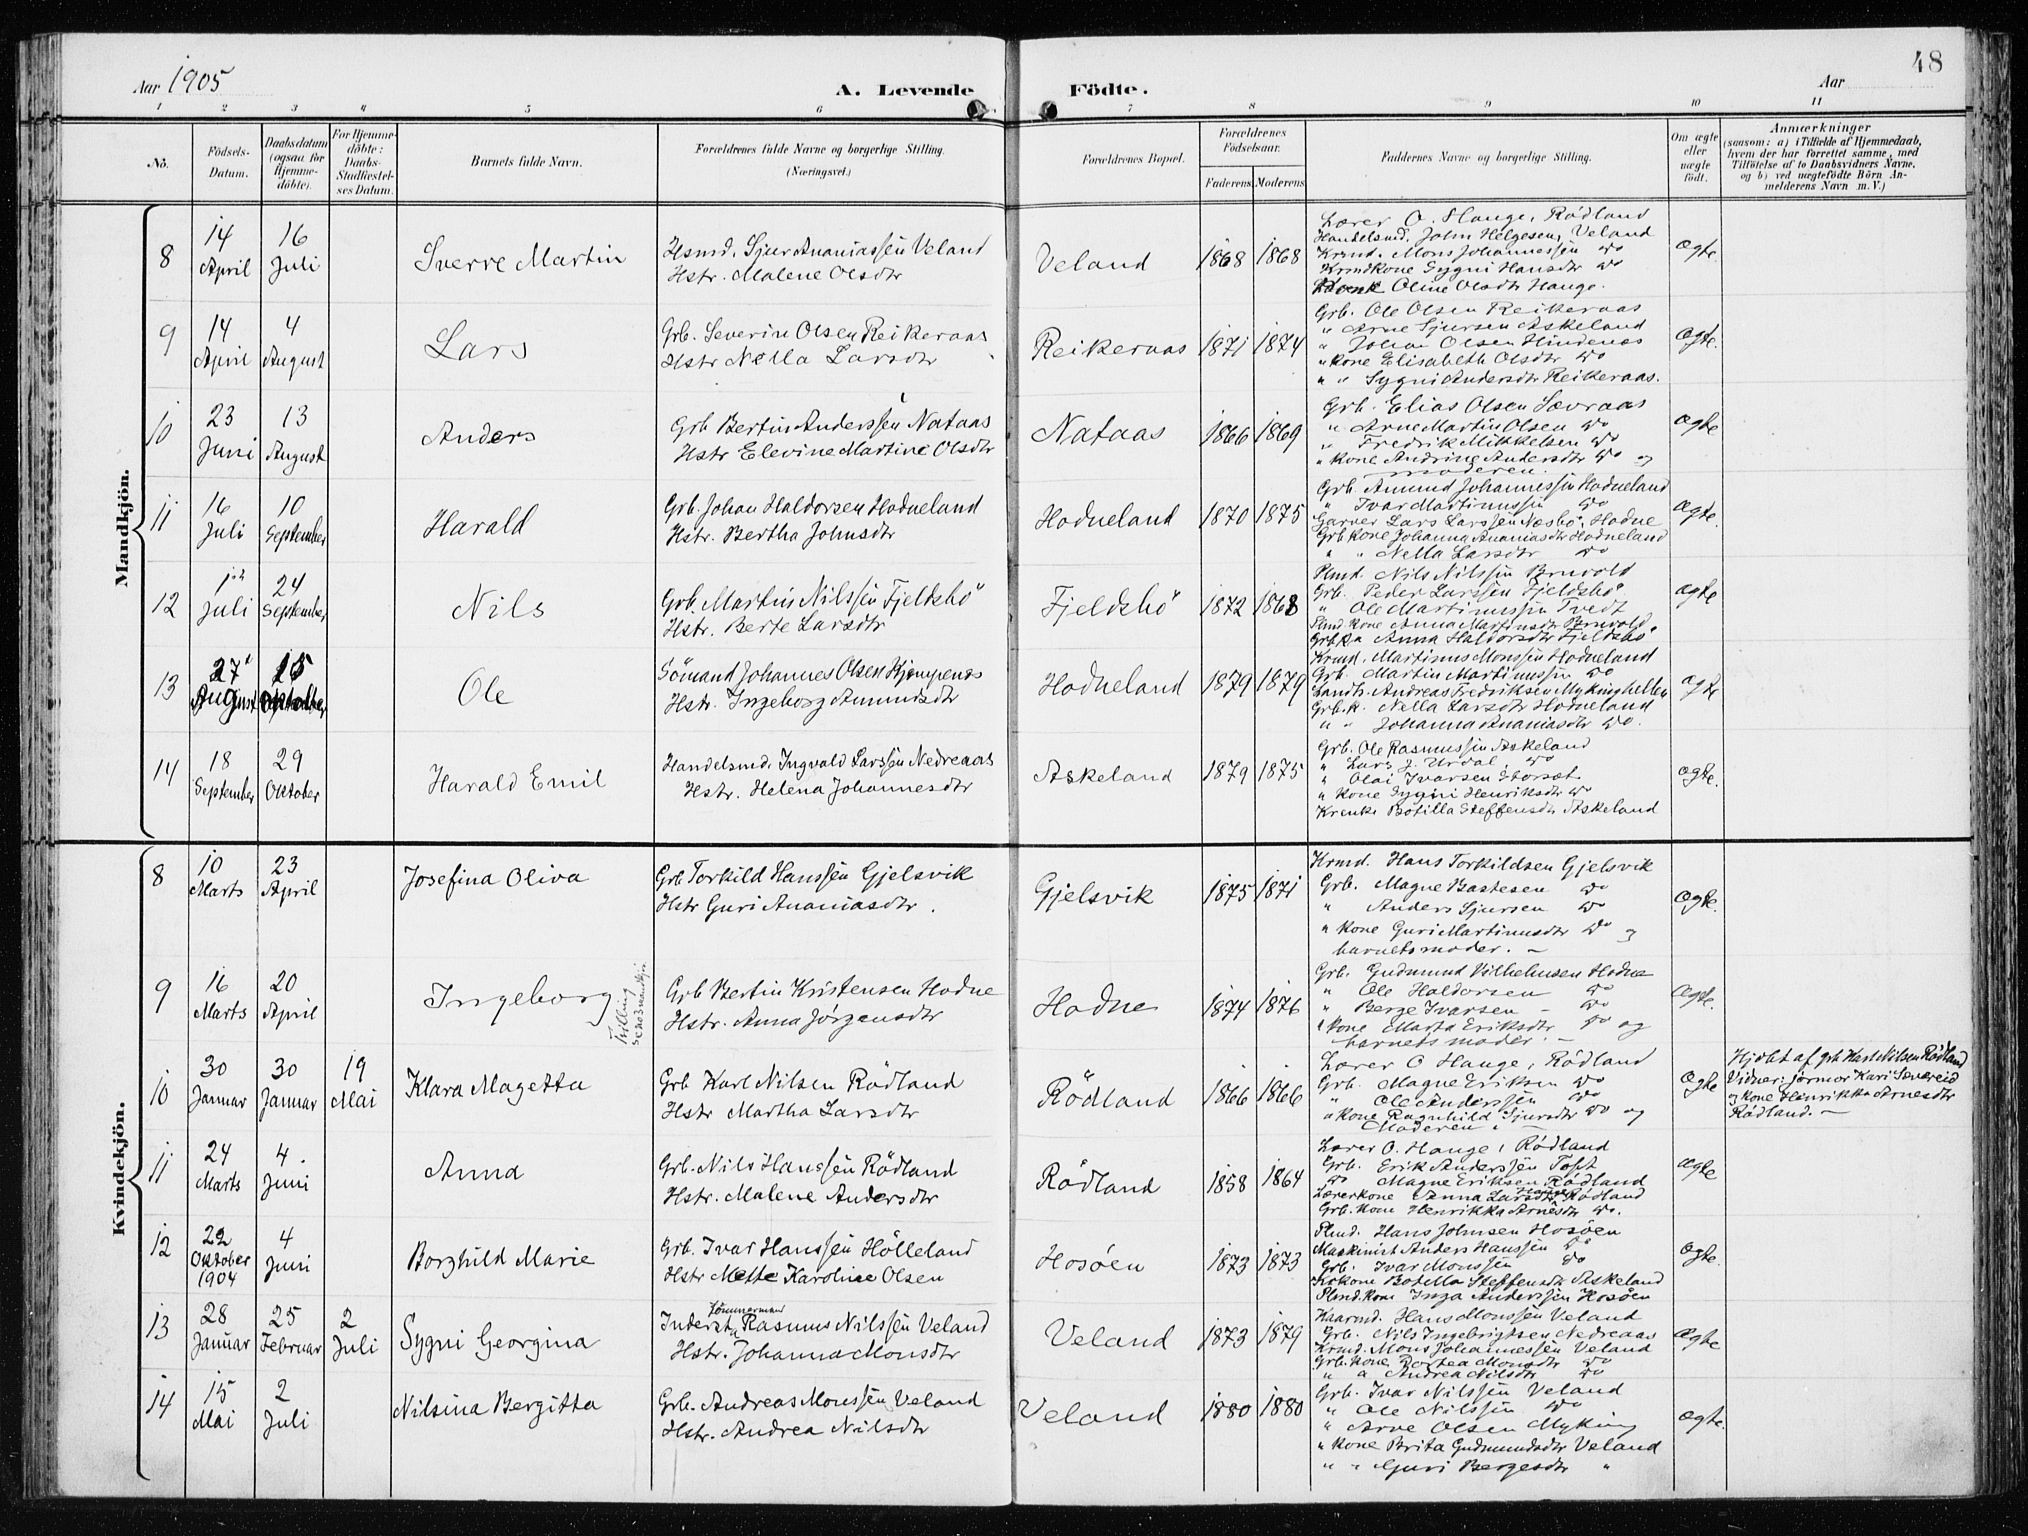 Aar 1905
A. Levende
Födte.
Aar
48
1 2 3 4 5 6 7 8 9 10 11
No.
Födsels-Datum.
Daabsdatum (ogsaa for Hjemmedöbte).
For Hjemmedöbte: Daabs-Stadfæstelses Datum.
Barnets fulde Navn.
Forældrenes fulde Navne og borgerlige Stilling. (Næringsvei.)
Forældrenes Bopæl.
Forældrenes Födselsaar.
Faderens. Moderens.
Faddernes Navne og borgerlige Stilling.
Om ægte eller uægte födt.
Anmærkninger
(saasom: a) i Tilfælde af Hjemmedaab,
hvem der har forrettet samme, med
Tilföielse af to Daabsvidners Navne,
og b) ved uægtefödte Börn An-
melderens Navn m. V.)
Mandkjön.
8 14 April 16 Juli Sverre Martin
Hsmd. Sjur Ananiassen Veland
Hstr. Malene Olsdtr
Veland 1868 1868
Lærer O. Hauge, Rödland
Handelsmd. John Helgesen, Veland
Krmd. Mons Johannessen do
Krmdkone Sygni Hansdtr do
Oline Olsdtr Hauge.
Ægte.
9 14 April 4 August Lars
Grb. Severin Olsen Reikeraas
Hstr Nella Larsdtr
Reikeraas 1871 1874
Grb. Ole Olsen Reikeraas
" Arne Sjursen Askeland
" Johan Olsen Hindenes
" kone Elisabeth Olsdtr do
" " Sygni Andersdtr Reikeraas.
Ægte.
10 23 Juni 13 August Anders
Grb Bertin Anderssen Nataas
Hstr Elevine Martine Olsdtr
Nataas 1866 1869
Grb. Elias Olsen Sævraas
" Arne Martin Olsen do
" Fredrik Mikkelsen do
" kone Andrine Andersdtr do og
moderen.
Ægte
11 16 Juli 10 September Harald
Grb. Johan Haldorsen Hodneland
Hstr. Bertha Johnsdtr
Hodneland 1870 1875
Grb. Amund Johannessen Hodneland
" Ivar Martinussen do
Garver Lars Larssen Næsbö, Hodne
Grb kone Johanna Ananiasdtr Hodneland
" " Nella Larsdtr do
Ægte.
12 Juli 24 September Nils
Grb. Martin Nilssen Fjeldsbö
Hstr. Berte Larsdtr
Fjeldsbö 1872 1868
Plmd. Nils Nilssen Bruvold
Grb. Peder Larssen Fjeldsbö
" Ole Martinussen Tvedt
Plmd kone Anna Martinsdtr Bruvold
Grbka Anna Haldorsdtr Fjeldsbö
Ægte
13 27 August 15 Oktober Ole
Sömand Johannes Olsen Kjempenes
Hstr. Ingeborg Amundsdtr
Hodneland 1879 1879
Krmd. Martinus Monssen Hodneland
Grb. Martin Martinussen do
Landh. Andreas Fredriksen Mykinghellen
Grb.k. Nella Larsdtr Hodneland
" " Johanna Ananiasdtr do.
Ægte
14 18 September 29 Oktober Harald Emil
Handelsmd. Ingvald Larssen Nedreaas
Hstr. Helena Johannesdtr
Askeland 1879 1875
Grb. Ole Rasmussen Askeland
" Lars J. Urdal, do
" Olai Ivarsen Storsæt
" kone Sygni Henriksdtr do
Krenke Botilla Steffensdtr Askeland
Ægte.
Kvindekjön.
8 10 Marts 23 April Josefina Oliva
Grb Torkild Hanssen Gjelsvik
Hstr Guri Ananiasdtr.
Gjelsvik 1875 1871
Krmd. Hans Torkildsen Gjelsvik
Grb. Magne Bastesen do
" Anders Sjursen do
" kone Guri Martinusdtr do og
barnets moder. –
Ægte.
9 16 Marts 20 April Ingeborg
Tvilling
se No 3 mandkjön
Grb Bertin Kristensen Hodne
Hstr. Anna Jørgensdtr
Hodne 1874 1876
Grb. Gudmund Vilhelmsen Hodne
" Ole Haldorsen do
" Berge Ivarsen – do
" kone Marta Eriksdtr do og
barnets moder. –
Ægte.
10 30 Januar 30 Januar 19 Mai Klara Magetta
Grb Karl Nilsen Rödland
Hstr Martha Larsdtr
Rödland 1866 1866
Lærer O Hauge, Rödland
Grb. Magne Eriksen do
" Ole Anderssen do
" kone Ragnhild Sjursdtr do og
Moderen. –
Ægte
Hjdöbt af grb Karl Nilsen Rödland
Vidner: jormor Kari Severeid
og kone Henrikka Arnesdtr
Rödland. –
11 24 Marts 4 Juni Anna
Grb. Nils Hanssen Rödland
Hstr. Malene Andersdtr
Rödland 1858 1864
Lærer O. Hauge, Rödland
Grb. Erik Anderssen Toft
do Magne Eriksen Rödland
Lærerkone Anna Larsdtr Hauge Rödland
Grb. kone Henrikka Arnesdtr do.
Ægte
12 22 Oktober 1904 4 Juni Borghild Marie
Grb. Ivar Hanssen Hölleland
Hstr Mette Karoline Olsen
Hosöen 1873 1873
Plmd. Hans Johnsen Hosöen
Maskinist Anders Hanssen do
Grb. Ivar Monssen do
Botilla Steffensdtr Askeland
Plmd. kone Inga Anderssen Hosöen
Ægte.
13 28 Januar 25 Februar 2 Juli Sygni Georgina
Inderst & Tömmermand Rasmus Nilssen Veland
Hstr. Johanna Monsdtr
Veland 1873 1879
Kaarmd. Hans Monssen Veland
Grb. Nils Ingebrigtsen Nedreaas
Krmd. Mons Johannessen Veland
Grb. kone Bortea Monsdtr do
" " Andrea Nilsdtr do
Ægte
14 15 Mai 2 Juli Nilsina Bergitta
Grb. Andreas Monssen Veland
Hstr. Andrea Nilsdtr
Veland 1880 1880
Grb. Ivar Nilssen Veland
" Ole Nilssen do
" Arve Olsen Myking
" kone Brita Gudmundsdtr Veland
" " Guri Bergesdtr "
Ægte.